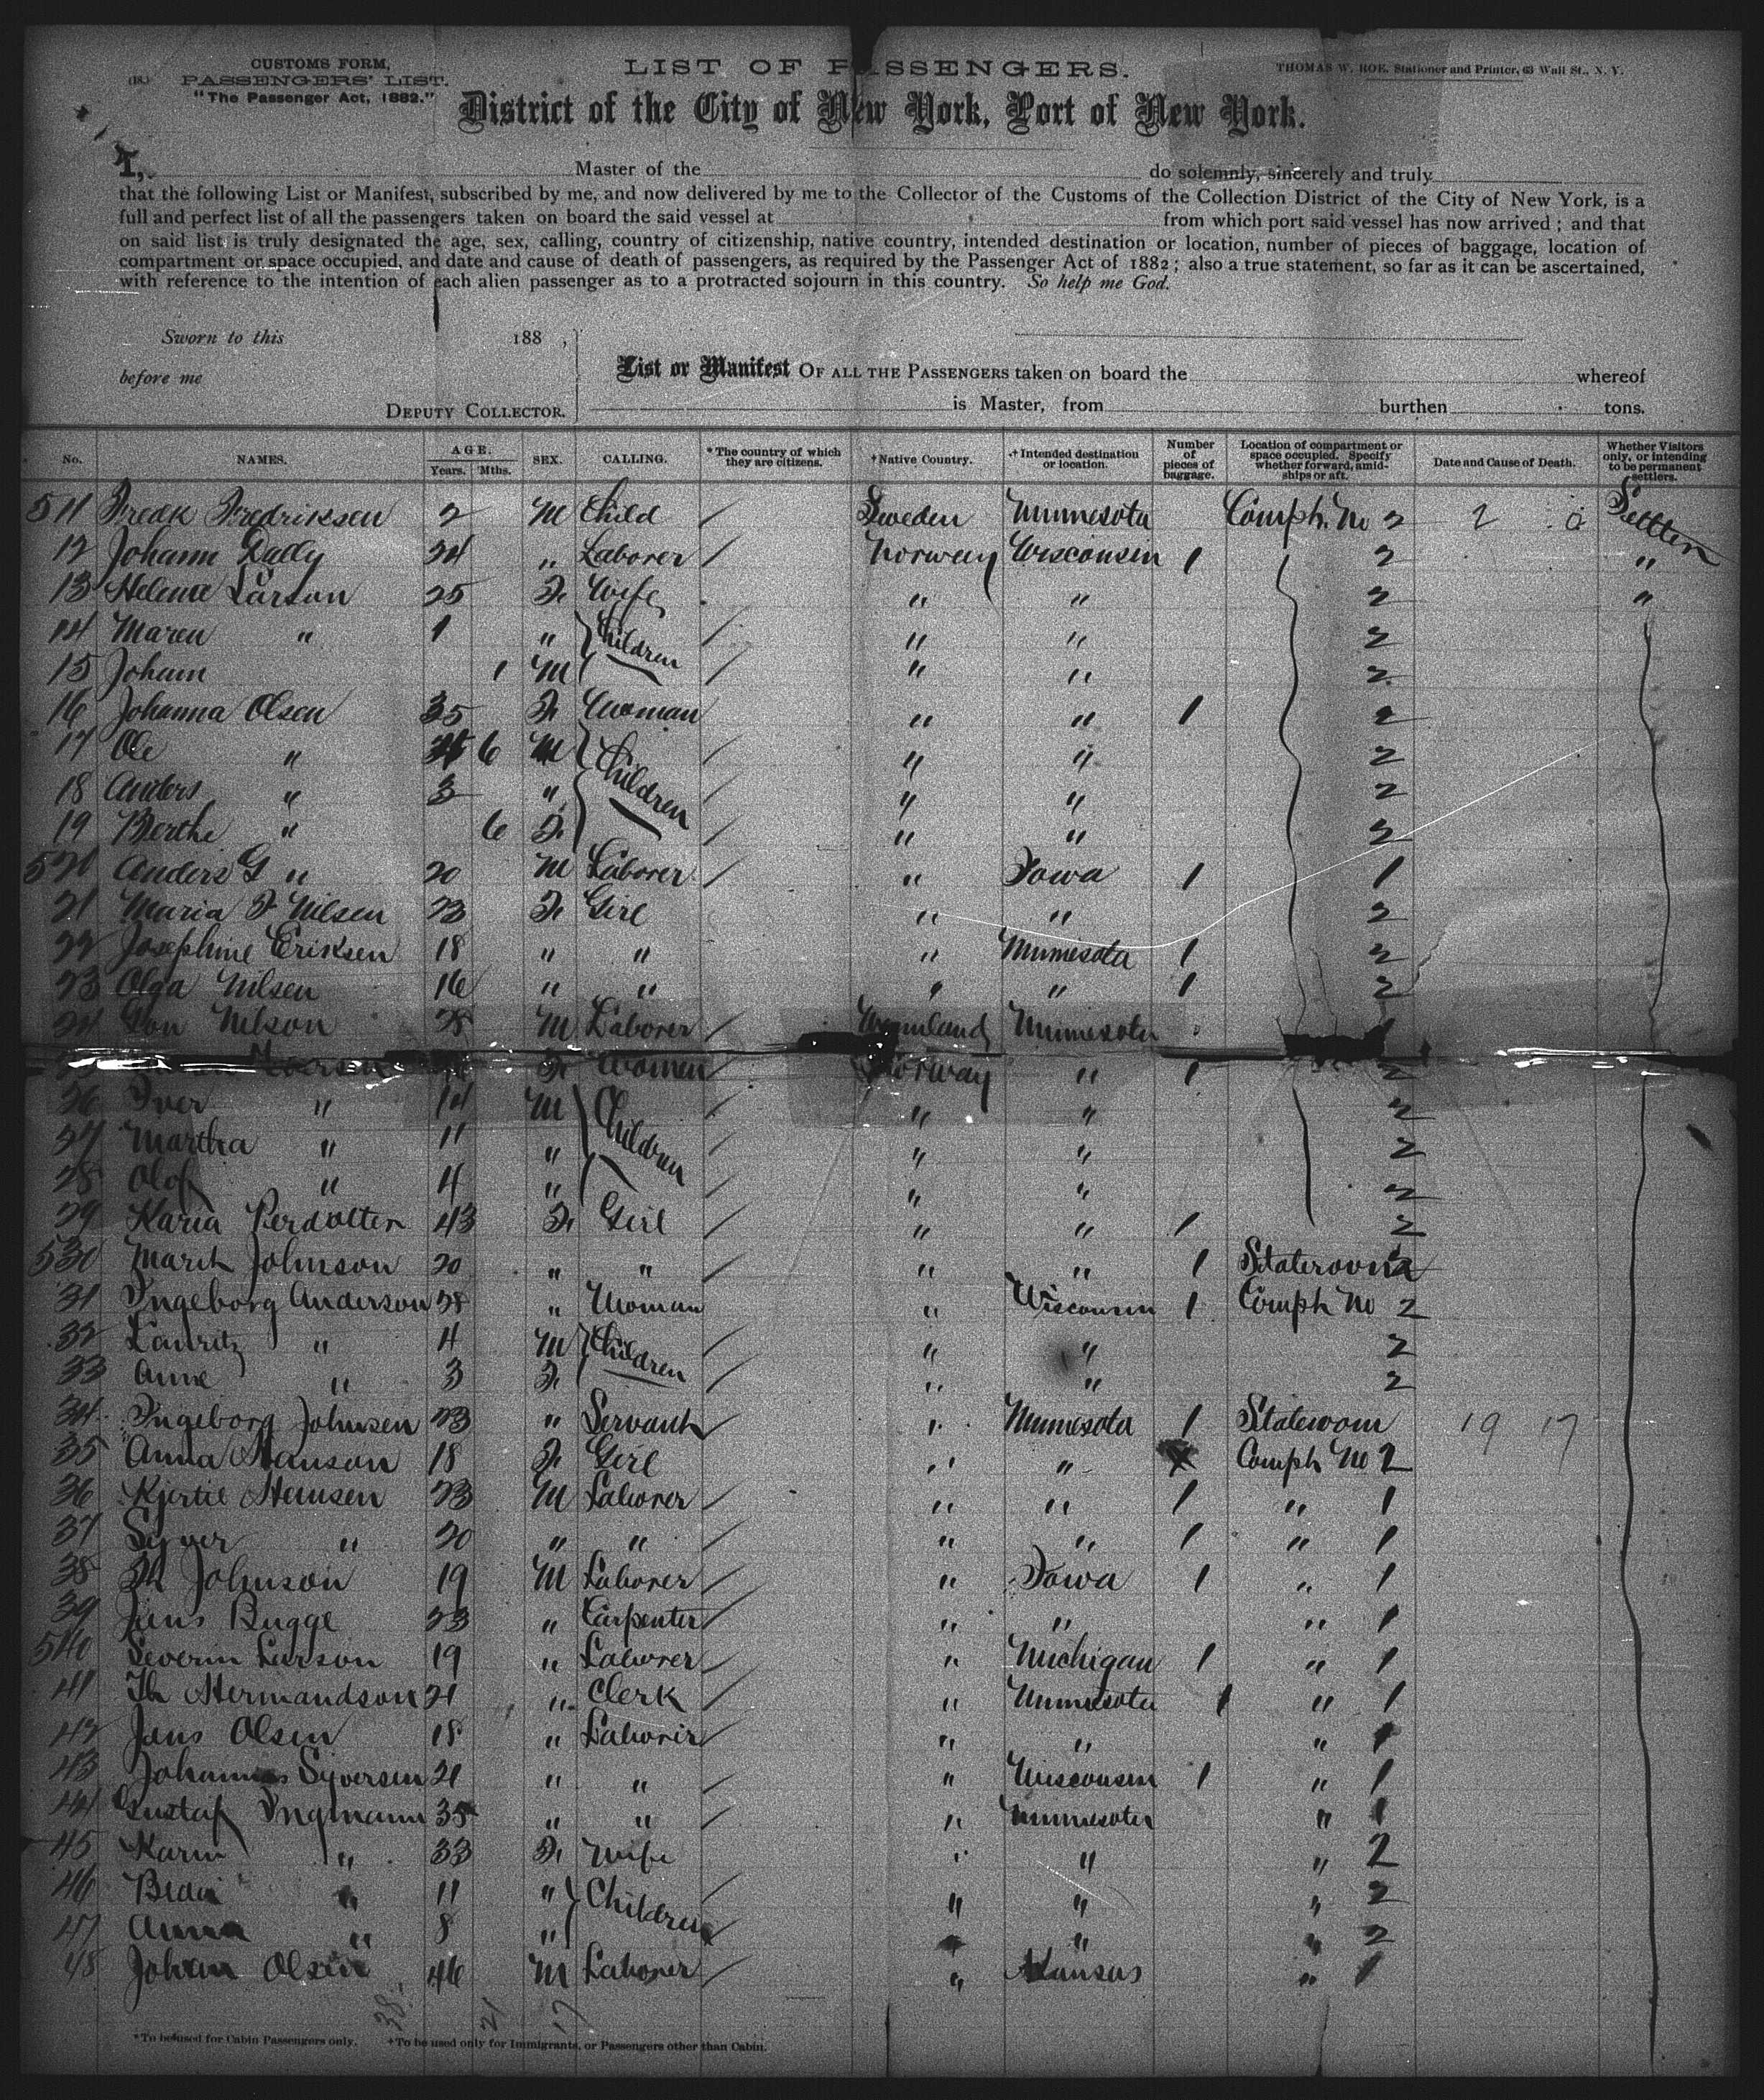 (18.)
CUSTOMS FORM,
PASSENGERS' LIST.
"The Passenger Act, 1882."
LIST OF PASSENGERS.
THOMAS W. ROE, Stationer and Printer, 63 Wall St., N. Y.
District of the City of New York, Port of New York.
I, Master of the do solemnly, sincerely and truly
that the following List or Manifest, subscribed by me, and now delivered by me to the Collector of the Customs of the Collection District of the City of New York, is a
full and perfect list of all the passengers taken on board the said vessel at from which port said vessel has now arrived; and that
on said list is truly designated the age, sex, calling, country of citizenship, native country, intended destination or location, number of pieces of baggage, location of
compartment or space occupied, and date and cause of death of passengers, as required by the Passenger Act of 1882; also a true statement, so far as it can be ascertained,
with reference to the intention of each alien passenger as to a protracted sojourn in this country. So help me God.
Sworn to this 188 ,
before me
DEPUTY COLLECTOR.
List or Manifest OF ALL THE PASSENGERS taken on board the whereof
is Master, from burthen tons.
No. NAMES. AGE. Years. Mths. SEX. CALLING. *The country of which they are citizens. †Native Country. †Intended destination or location. Number of pieces of baggage. Location of compartment or space occupied. Specify whether forward, amidships or aft. Date and Cause of Death. Whether Visitors only, or intending to be permanent settlers.
511 Fredk Fredriksen 2 M Child / Sweden Minnesota Compt. No 2 2
12 Johann Dally 24 " Laborer / Norway Wisconsin 1 2 "
13 Helene Larson 25 F. Wife " " 2 "
14 Maren " 1 " Children / " " 2
15 Joham 1 M / " " 2
16 Johanna Olsen 35 F. Woman " " 1 2
17 Ole " 6 M Children / " " 2
18 Anders " 3 " / " " 2
19 Berthe " 6 F. / " " 2
520 Anders G " 20 M Laborer / " Iowa 1 1
21 Maria F Nilsen 23 F. Girl " " 2
22 Josephine Eriksen 18 " " " Minnesota 1 2
23 Olga Nilsen 16 " " " " 1 2
24 Nelson 28 M Laborer / Minnesota 1
F. Women / Norway " 1 2
26 Iver " 14 M Children / " " 2
27 Martha " 11 " / " " 2
28 Olof " 4 " / " " 2
29 Karia 43 F. Girl / " " 1 2
530 Marit Johnson 20 " " / " " 1 Stateroom
31 Ingeborg Anderson 28 " Woman " Wisconsin 1 Compt No 2
32 Lauritz " 4 M Children / " " 2
33 Anne " 3 F. / " " 2
34 Ingeborg Johnsen 23 " Servant / " Minnesota 1 Stateroom 19 17
35 Anna Hanson 18 F. Girl " " Compt No 2
36 Kjertil Hemsen 23 M Laborer / " " 1 " 1
37 Syver " 20 " " / " " 1 " 1
38 Johnson 19 M Laborer / " Iowa 1 " 1
39 Jens Bugge 23 " Carpenter / " " " 1
540 Severin Larson 19 " Laborer / " Michigan 1 " 1
41 Th Hermandson 21 " Clerk / " Minnesota 1 " 1
42 Jens Olsen 18 " Laborer / " " " 1
43 Johannes Syversen 21 " " / " Wisconsin 1 " 1
44 Gustaf Ingmann 35 " " / " Minnesota " 1
45 Karin " 33 F. Wife " " " 2
46 " 11 " Children / " " " 2
47 Anna " 8 " / " " 2
48 Johan Olsen 46 M Laborer / " Kansas " 1
38 21 17
*To be used for Cabin Passengers only. †To be used only for Immigrants, or Passengers other than Cabin.